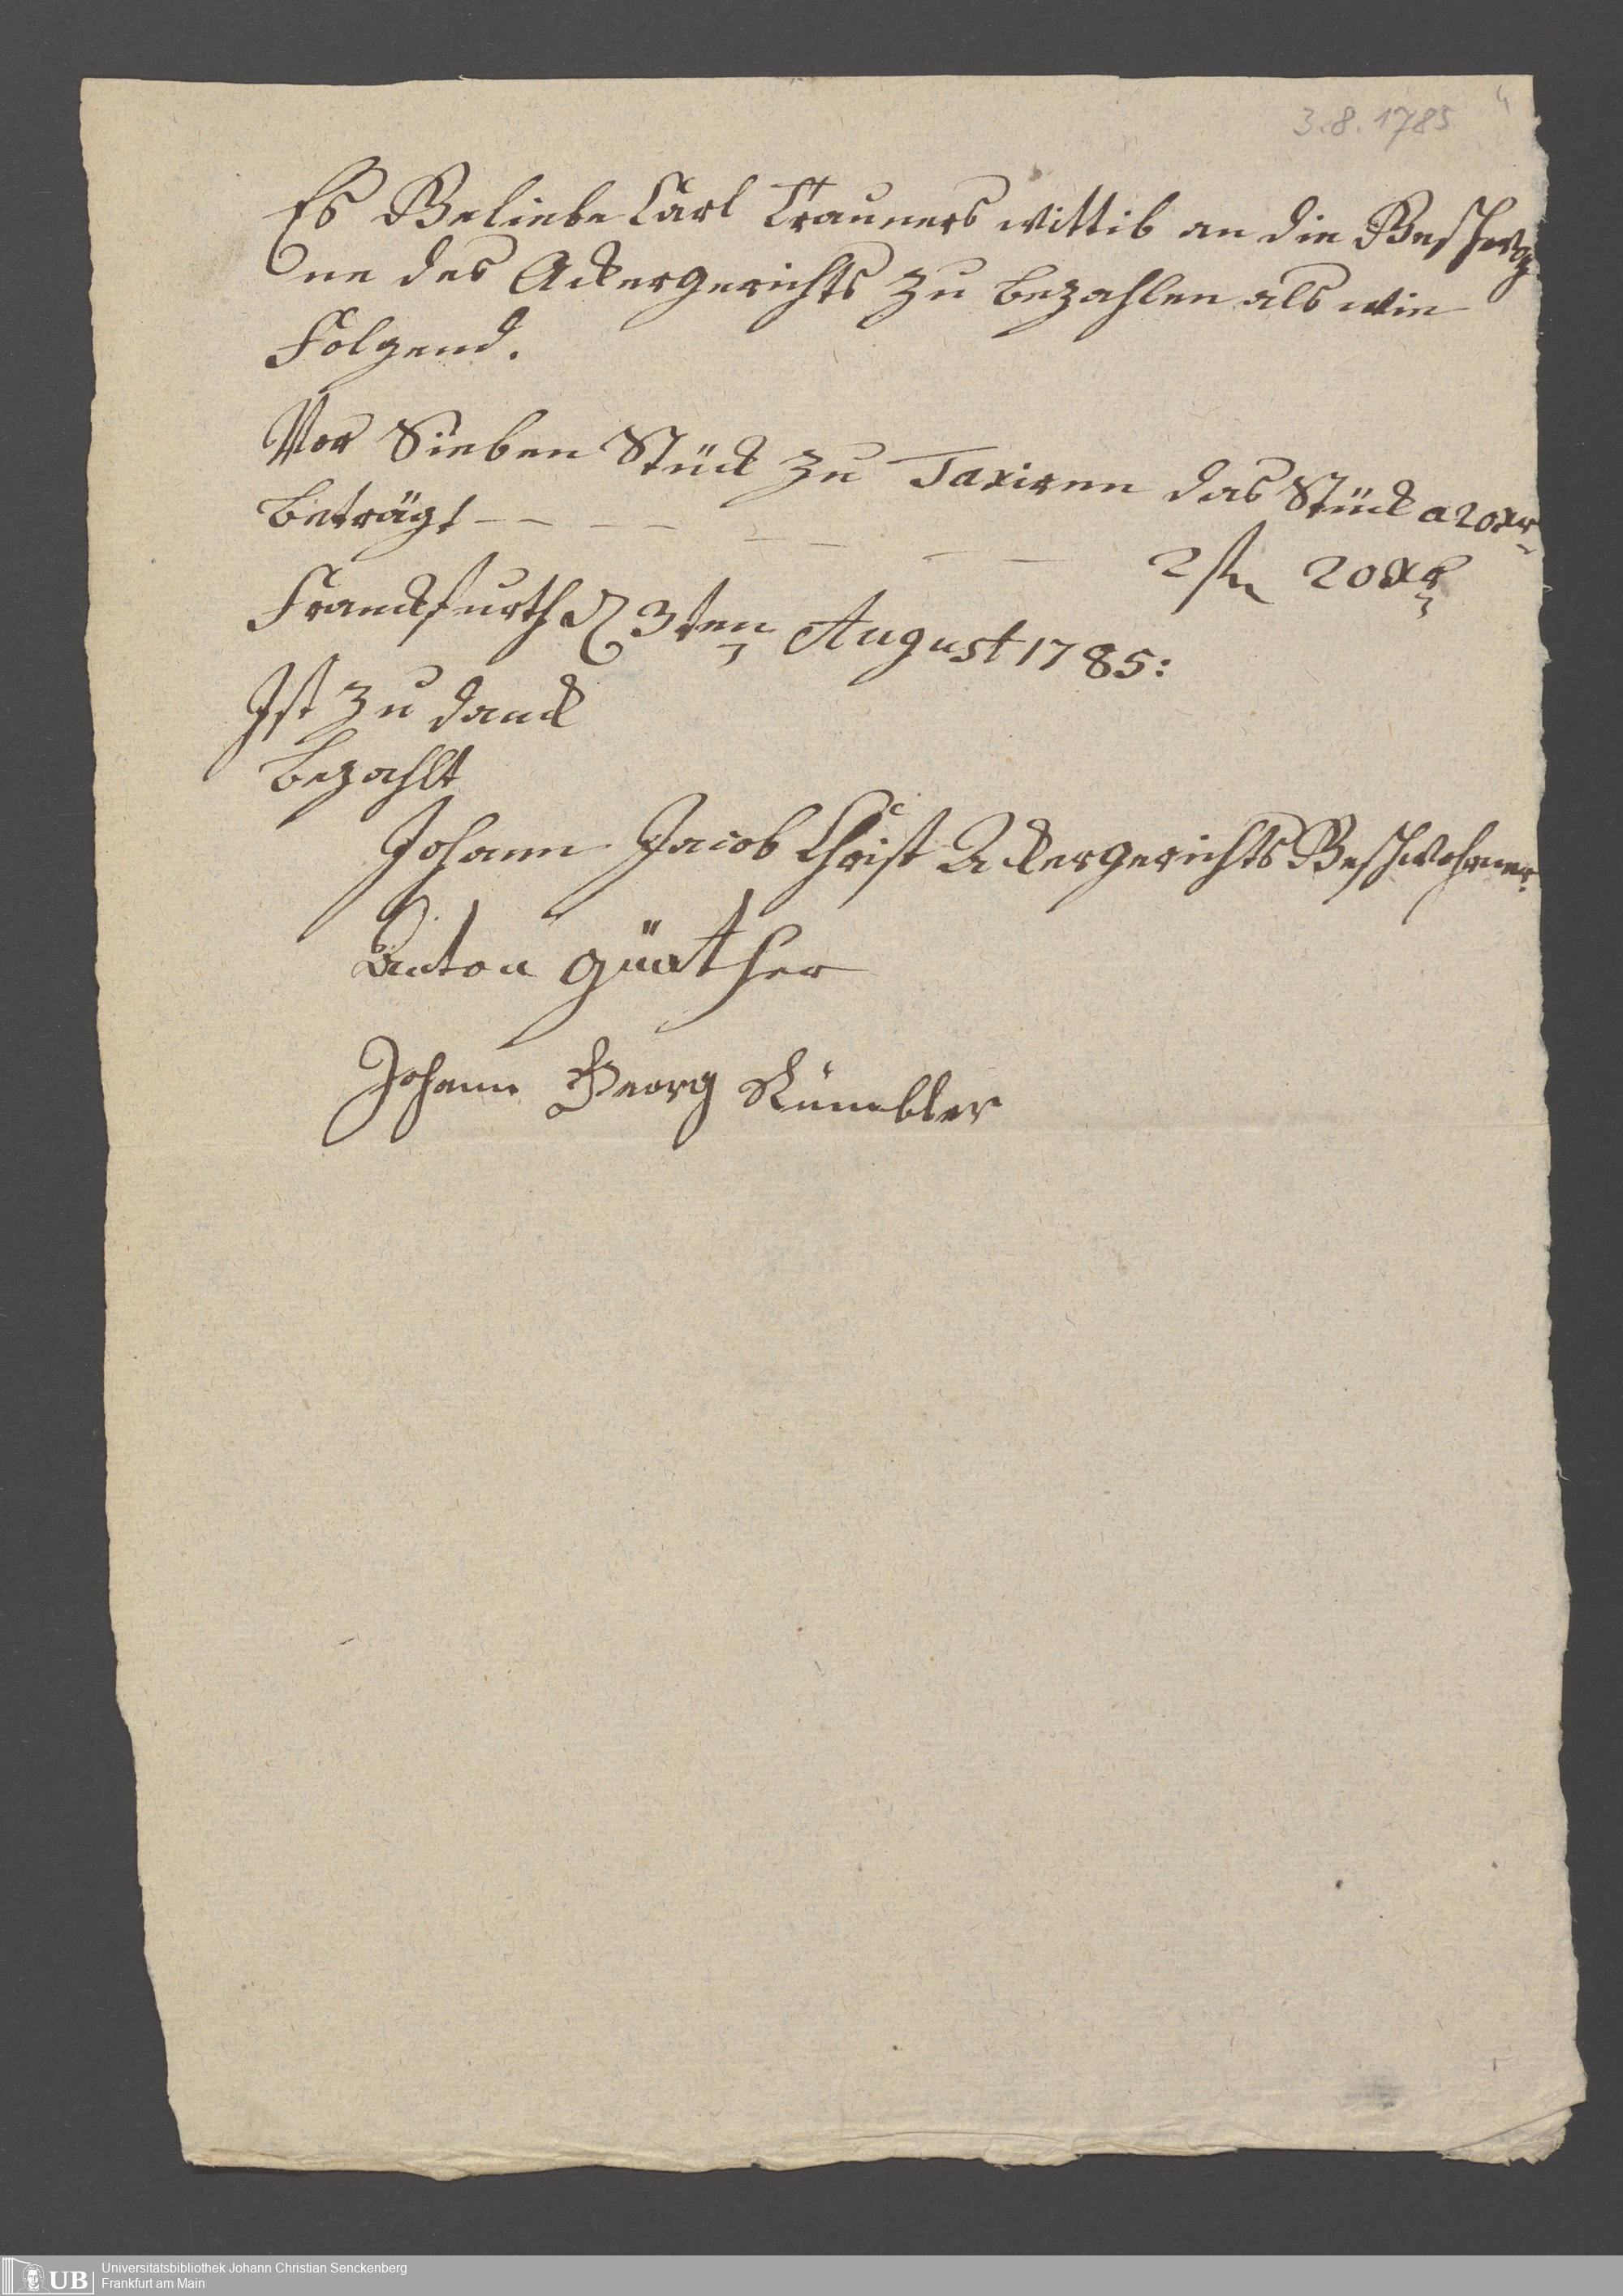 3.8.1785
4
Es Beliebe Carl Trauners wittib an die
ne des Ackergerichts zu bezahlen als wie
Folgend.
Vor Sieben Stück zu Taxiren das Stück a 20 xr
beträgt — — — — — — — —
2 fl 20 xr
Franckfurth d 3ten August 1785:
Ist zu danck
bezahlt
Johann Jacob Christ Ackergerichts Beschwohrner
Anton günther
Johann Georg
Universitätsbibliothek Johann Christian Senckenberg
Frankfurt am Main
UB